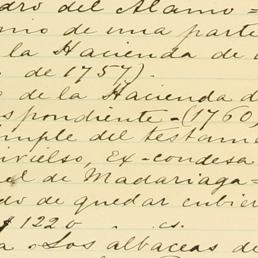 dro del Alamo =
nio de una parte
la Hacienda de
de 1757).
o de la Hacienda d
spondiente - (1760)
imple del testam
ivielso, Ex-condesa
el de Madariaga =
do de quedar cubier
$1220 . cs.
a . Los albaceas de